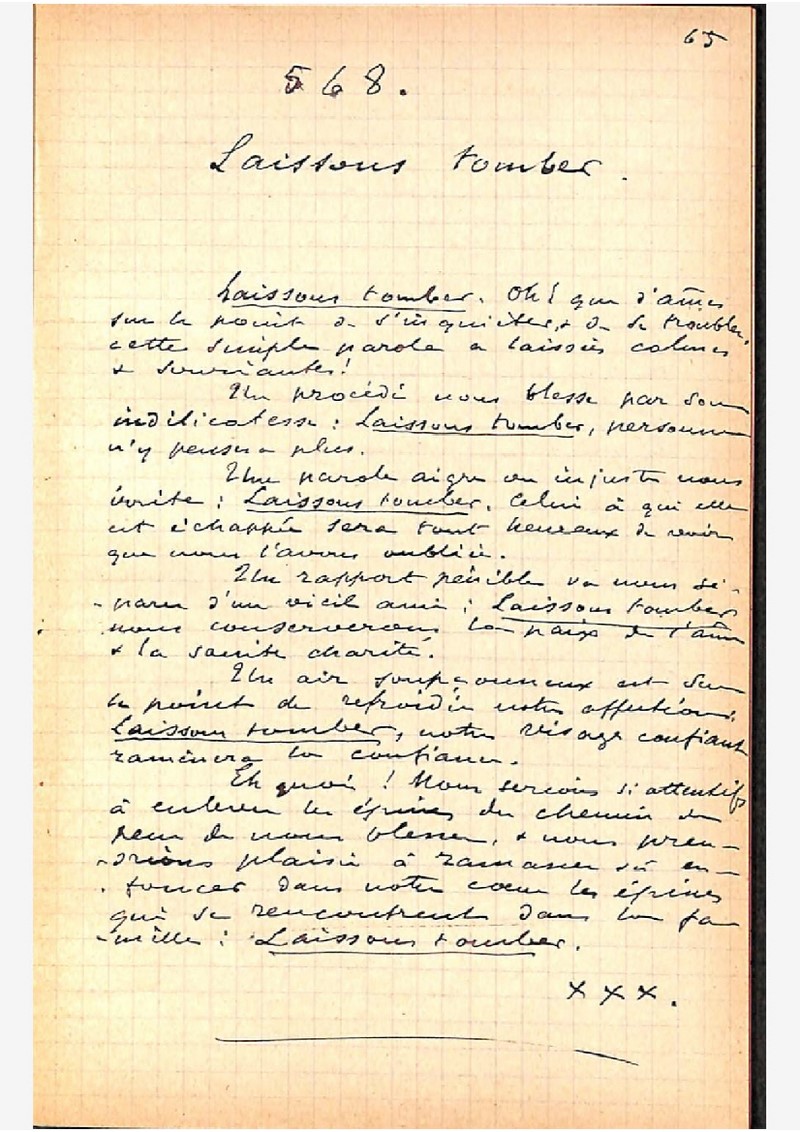 65
568.
Laissons tomber.
Laissons tomber. Oh! que d'âmes
sur le point de s'inquiéter, & de se troubler,
cette simple parole a laissées calmes
& souriantes!
Un procédé nous blesse par son
indélicatesse : Laissons tomber, personne
n'y pensera plus.
Une parole aigre ou injuste nous
irrite : Laissons tomber. Celui à qui elle
est échappée sera tout heureux de voir
que nous l'avons oubliée.
Un rapport pénible va nous sé-
-parer d'un vieil ami : Laissons tomber
nous conserverons la paix de l'âme
& la sainte charité.
Un air soupçonneux est sur
le point de refroidir notre affection.
Laissons tomber, notre visage confiant
ramènera la confiance.
Eh quoi ! Nous serions si attentifs
à enlever les épines du chemin de
peur de nous blesser, & nous pren-
-drions plaisir à ramasser et en-
-foncer dans notre cœur les épines
qui se rencontrent dans la fa
-mille : Laissons tomber.
xxx.